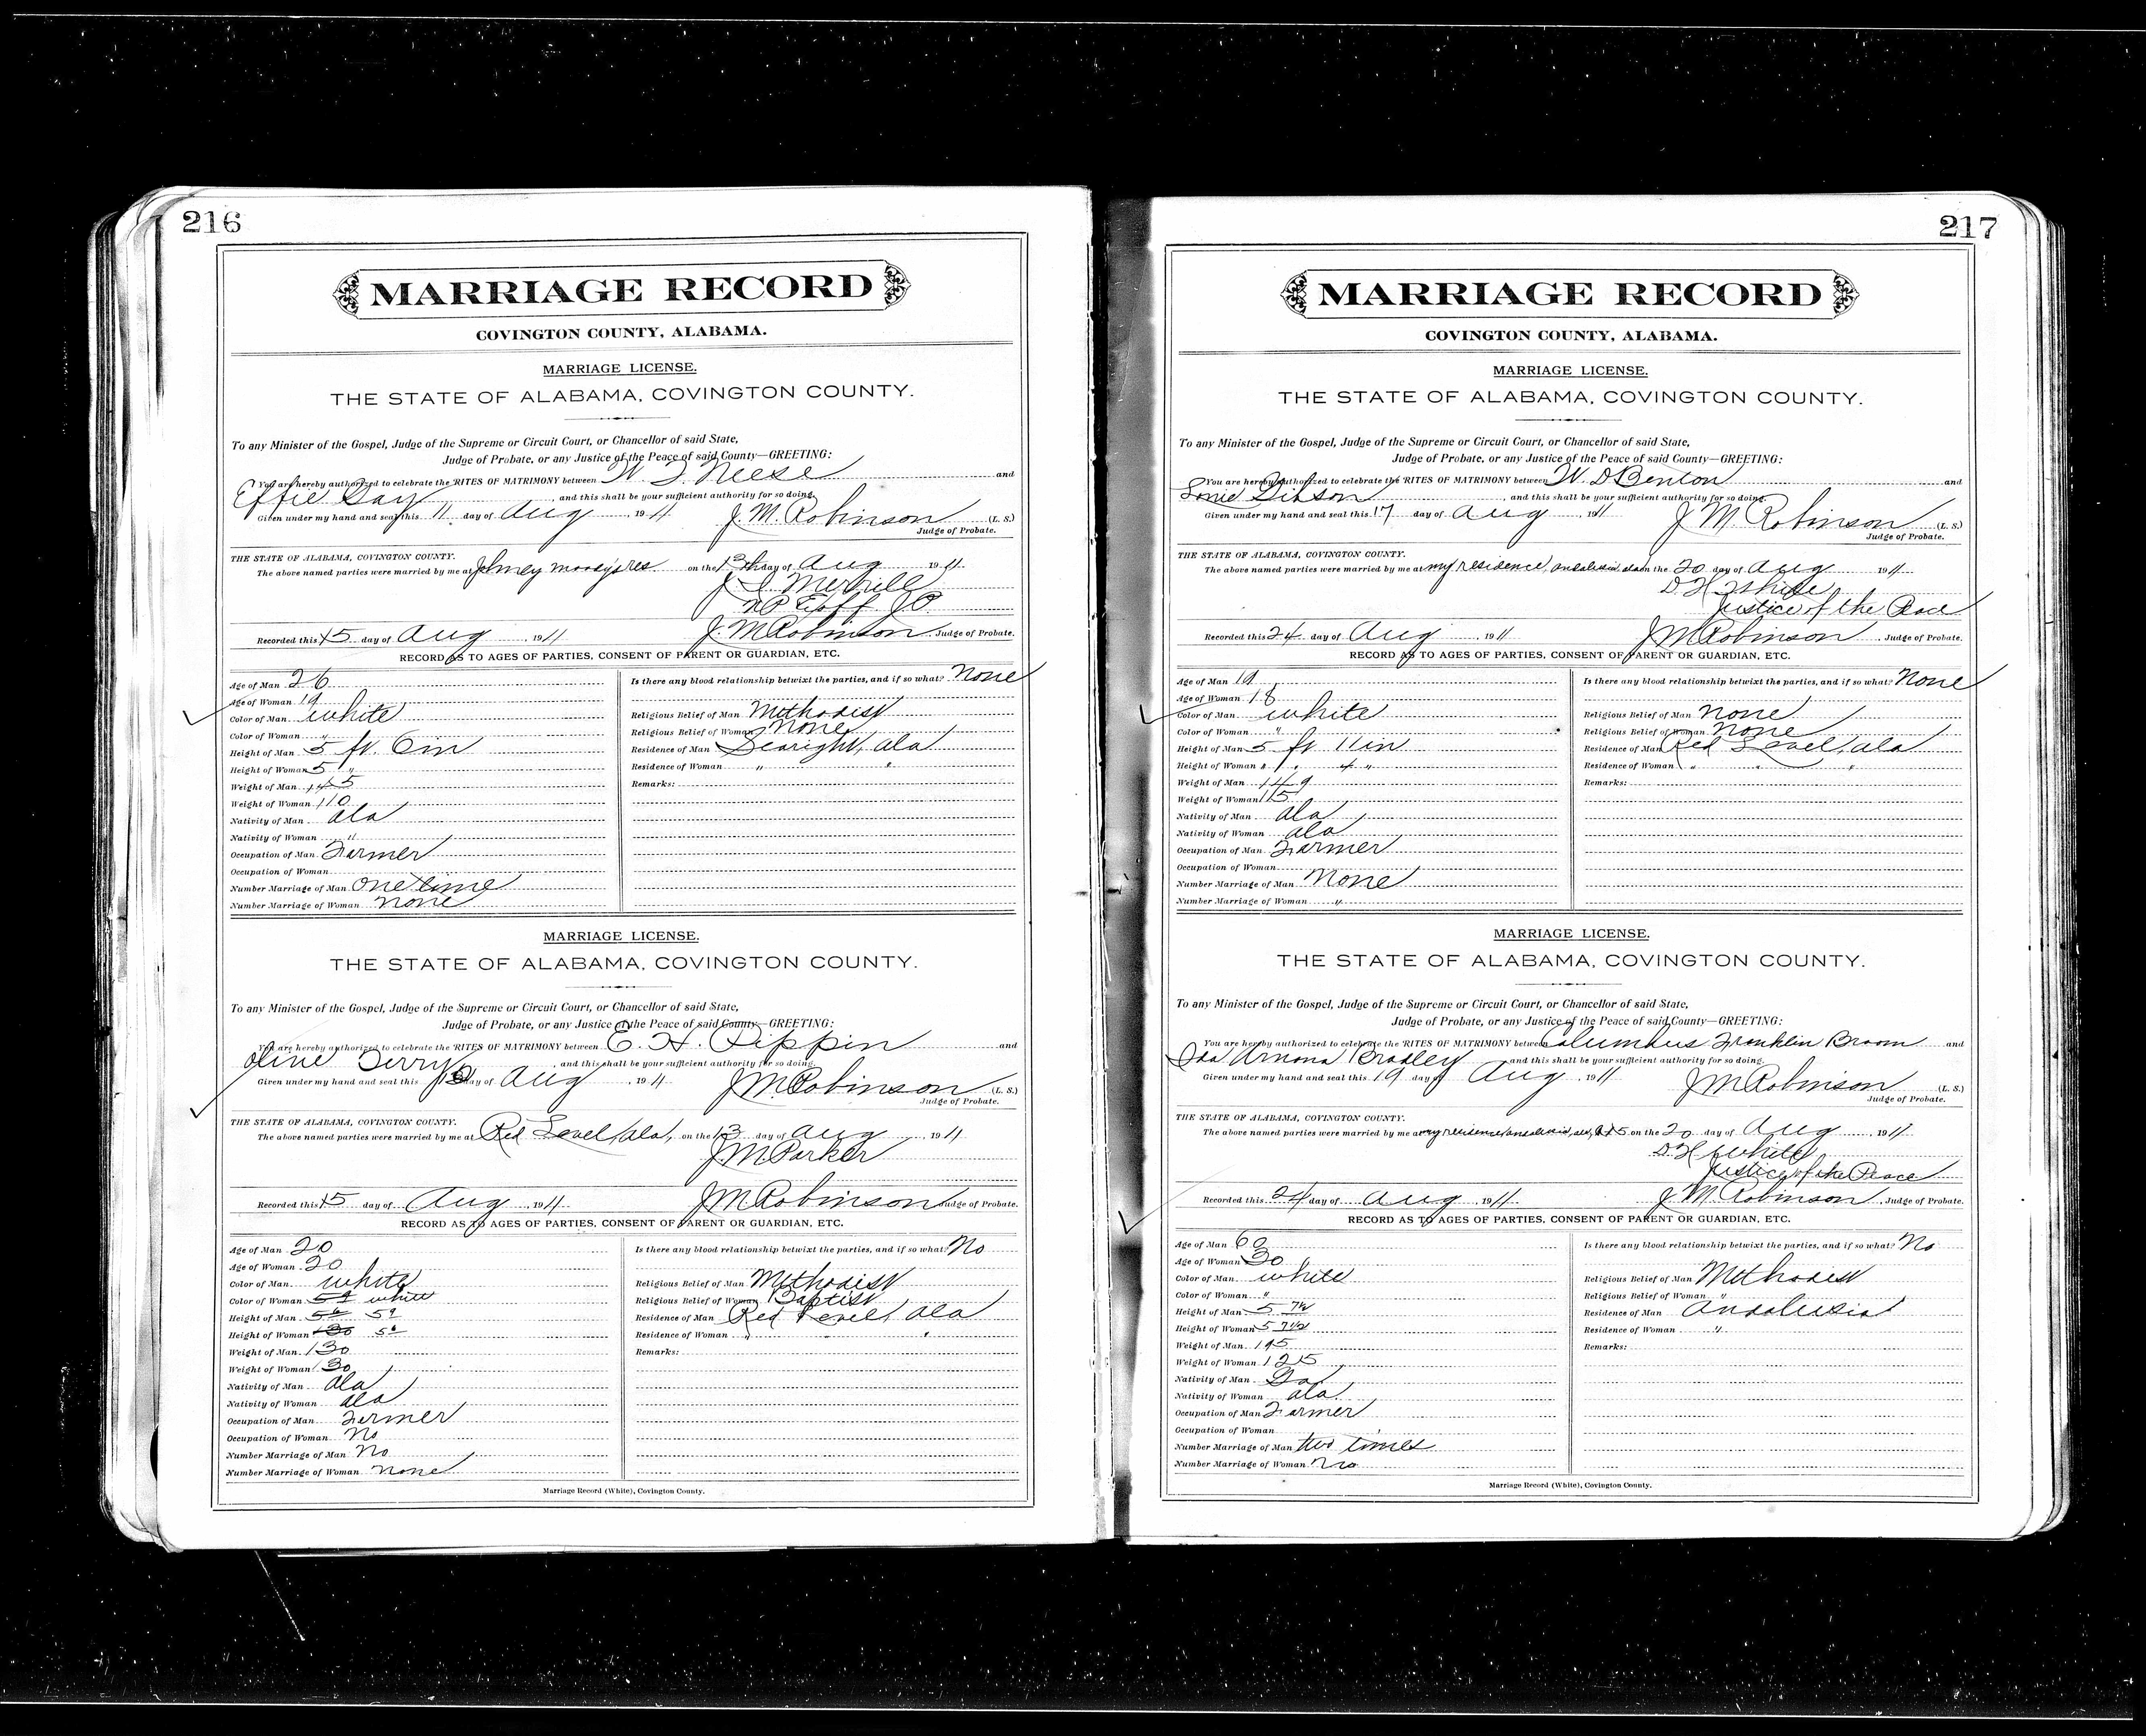 216
MARRIAGE RECORD
COVINGTON COUNTY, ALABAMA.
MARRIAGE LICENSE.
THE STATE OF ALABAMA, COVINGTON COUNTY.
To any Minister of the Gospel, Judge of the Supreme or Circuit Court, or Chancellor of said State,
Judge of Probate, or any Justice of the Peace of said County—GREETING:
You are hereby authorized to celebrate the RITES OF MATRIMONY between W Neese and
Effie Gay, and this shall be your sufficient authority for so doing.
Given under my hand and seal this 11 day of Aug 1911 J. M. Robinson (L. S.)
Judge of Probate.
THE STATE OF ALABAMA, COVINGTON COUNTY.
The above named parties were married by me at Johney res on the 13th day of Aug 1911.
J Merrill
J.P.
Recorded this 15 day of Aug 1911 J. M Robinson Judge of Probate.
RECORD AS TO AGES OF PARTIES, CONSENT OF PARENT OR GUARDIAN, ETC.
Age of Man 26
Age of Woman 19
Color of Man white
Color of Woman "
Height of Man 5 ft. 6in
Height of Woman 5 "
Weight of Man 145
Weight of Woman 110
Nativity of Man ala
Nativity of Woman "
Occupation of Man Farmer
Occupation of Woman
Number Marriage of Man one time
Number Marriage of Woman none
Is there any blood relationship betwixt the parties, and if so what? None
Religious Belief of Man Methodist
Religious Belief of Woman None
Residence of Man Searight, ala
Residence of Woman " "
Remarks:
MARRIAGE LICENSE.
THE STATE OF ALABAMA, COVINGTON COUNTY.
To any Minister of the Gospel, Judge of the Supreme or Circuit Court, or Chancellor of said State,
Judge of Probate, or any Justice of the Peace of said County—GREETING:
You are hereby authorized to celebrate the RITES OF MATRIMONY between E. H. Pippin and
Olive Terry, and this shall be your sufficient authority for so doing.
Given under my hand and seal this day of Aug 1911. J M Robinson (L. S.)
Judge of Probate.
THE STATE OF ALABAMA, COVINGTON COUNTY.
The above named parties were married by me at Red Level, ala, on the 13 day of Aug 1911
J. M. Parker
Recorded this 15 day of Aug 1911. J M Robinson Judge of Probate.
RECORD AS TO AGES OF PARTIES, CONSENT OF PARENT OR GUARDIAN, ETC.
Age of Man 20
Age of Woman 20
Color of Man white
Color of Woman white
Height of Man 5 9
Height of Woman 5 6
Weight of Man 130
Weight of Woman 130
Nativity of Man Ala
Nativity of Woman ala
Occupation of Man Farmer
Occupation of Woman No
Number Marriage of Man No
Number Marriage of Woman none
Is there any blood relationship betwixt the parties, and if so what? No
Religious Belief of Man Methodist
Religious Belief of Woman Baptist
Residence of Man Red Level, Ala
Residence of Woman " "
Remarks:
Marriage Record (White), Covington County.
217
MARRIAGE RECORD
COVINGTON COUNTY, ALABAMA.
MARRIAGE LICENSE.
THE STATE OF ALABAMA, COVINGTON COUNTY.
To any Minister of the Gospel, Judge of the Supreme or Circuit Court, or Chancellor of said State,
Judge of Probate, or any Justice of the Peace of said County—GREETING:
You are hereby authorized to celebrate the RITES OF MATRIMONY between W. D Benton and
Gibson, and this shall be your sufficient authority for so doing.
Given under my hand and seal this 17 day of Aug 1911 J M Robinson (L. S.)
Judge of Probate.
THE STATE OF ALABAMA, COVINGTON COUNTY.
The above named parties were married by me at my residence, andalusia, ala on the 20 day of Aug 1911
D. H White
Justice of the Peace
Recorded this 24 day of Aug 1911 J M Robinson, Judge of Probate.
RECORD AS TO AGES OF PARTIES, CONSENT OF PARENT OR GUARDIAN, ETC.
Age of Man 19
Age of Woman 18
Color of Man white
Color of Woman "
Height of Man 5 ft 11in
Height of Woman " " 4 "
Weight of Man 149
Weight of Woman 115
Nativity of Man ala
Nativity of Woman ala
Occupation of Man Farmer
Occupation of Woman
Number Marriage of Man None
Number Marriage of Woman "
Is there any blood relationship betwixt the parties, and if so what? None
Religious Belief of Man None
Religious Belief of Woman None
Residence of Man Red Level, ala
Residence of Woman " " "
Remarks:
MARRIAGE LICENSE.
THE STATE OF ALABAMA, COVINGTON COUNTY.
To any Minister of the Gospel, Judge of the Supreme or Circuit Court, or Chancellor of said State,
Judge of Probate, or any Justice of the Peace of said County—GREETING:
You are hereby authorized to celebrate the RITES OF MATRIMONY between Columbus Franklin Broom and
Ida Arnona Bradley and this shall be your sufficient authority for so doing.
Given under my hand and seal this 19 day of Aug 1911 J M Robinson (L. S.)
Judge of Probate.
THE STATE OF ALABAMA, COVINGTON COUNTY.
The above named parties were married by me at my residence, andalusia, ala, on the 20 day of Aug 1911
D. H White
Justice of the Peace
Recorded this 24 day of Aug 1911. J. M. Robinson, Judge of Probate.
RECORD AS TO AGES OF PARTIES, CONSENT OF PARENT OR GUARDIAN, ETC.
Age of Man 60
Age of Woman 30
Color of Man white
Color of Woman "
Height of Man 5 7½
Height of Woman 5 7½
Weight of Man 145
Weight of Woman 125
Nativity of Man Ga
Nativity of Woman ala
Occupation of Man Farmer
Occupation of Woman
Number Marriage of Man two times
Number Marriage of Woman No
Is there any blood relationship betwixt the parties, and if so what? No
Religious Belief of Man Methodist
Religious Belief of Woman "
Residence of Man Andalusia
Residence of Woman "
Remarks:
Marriage Record (White), Covington County.